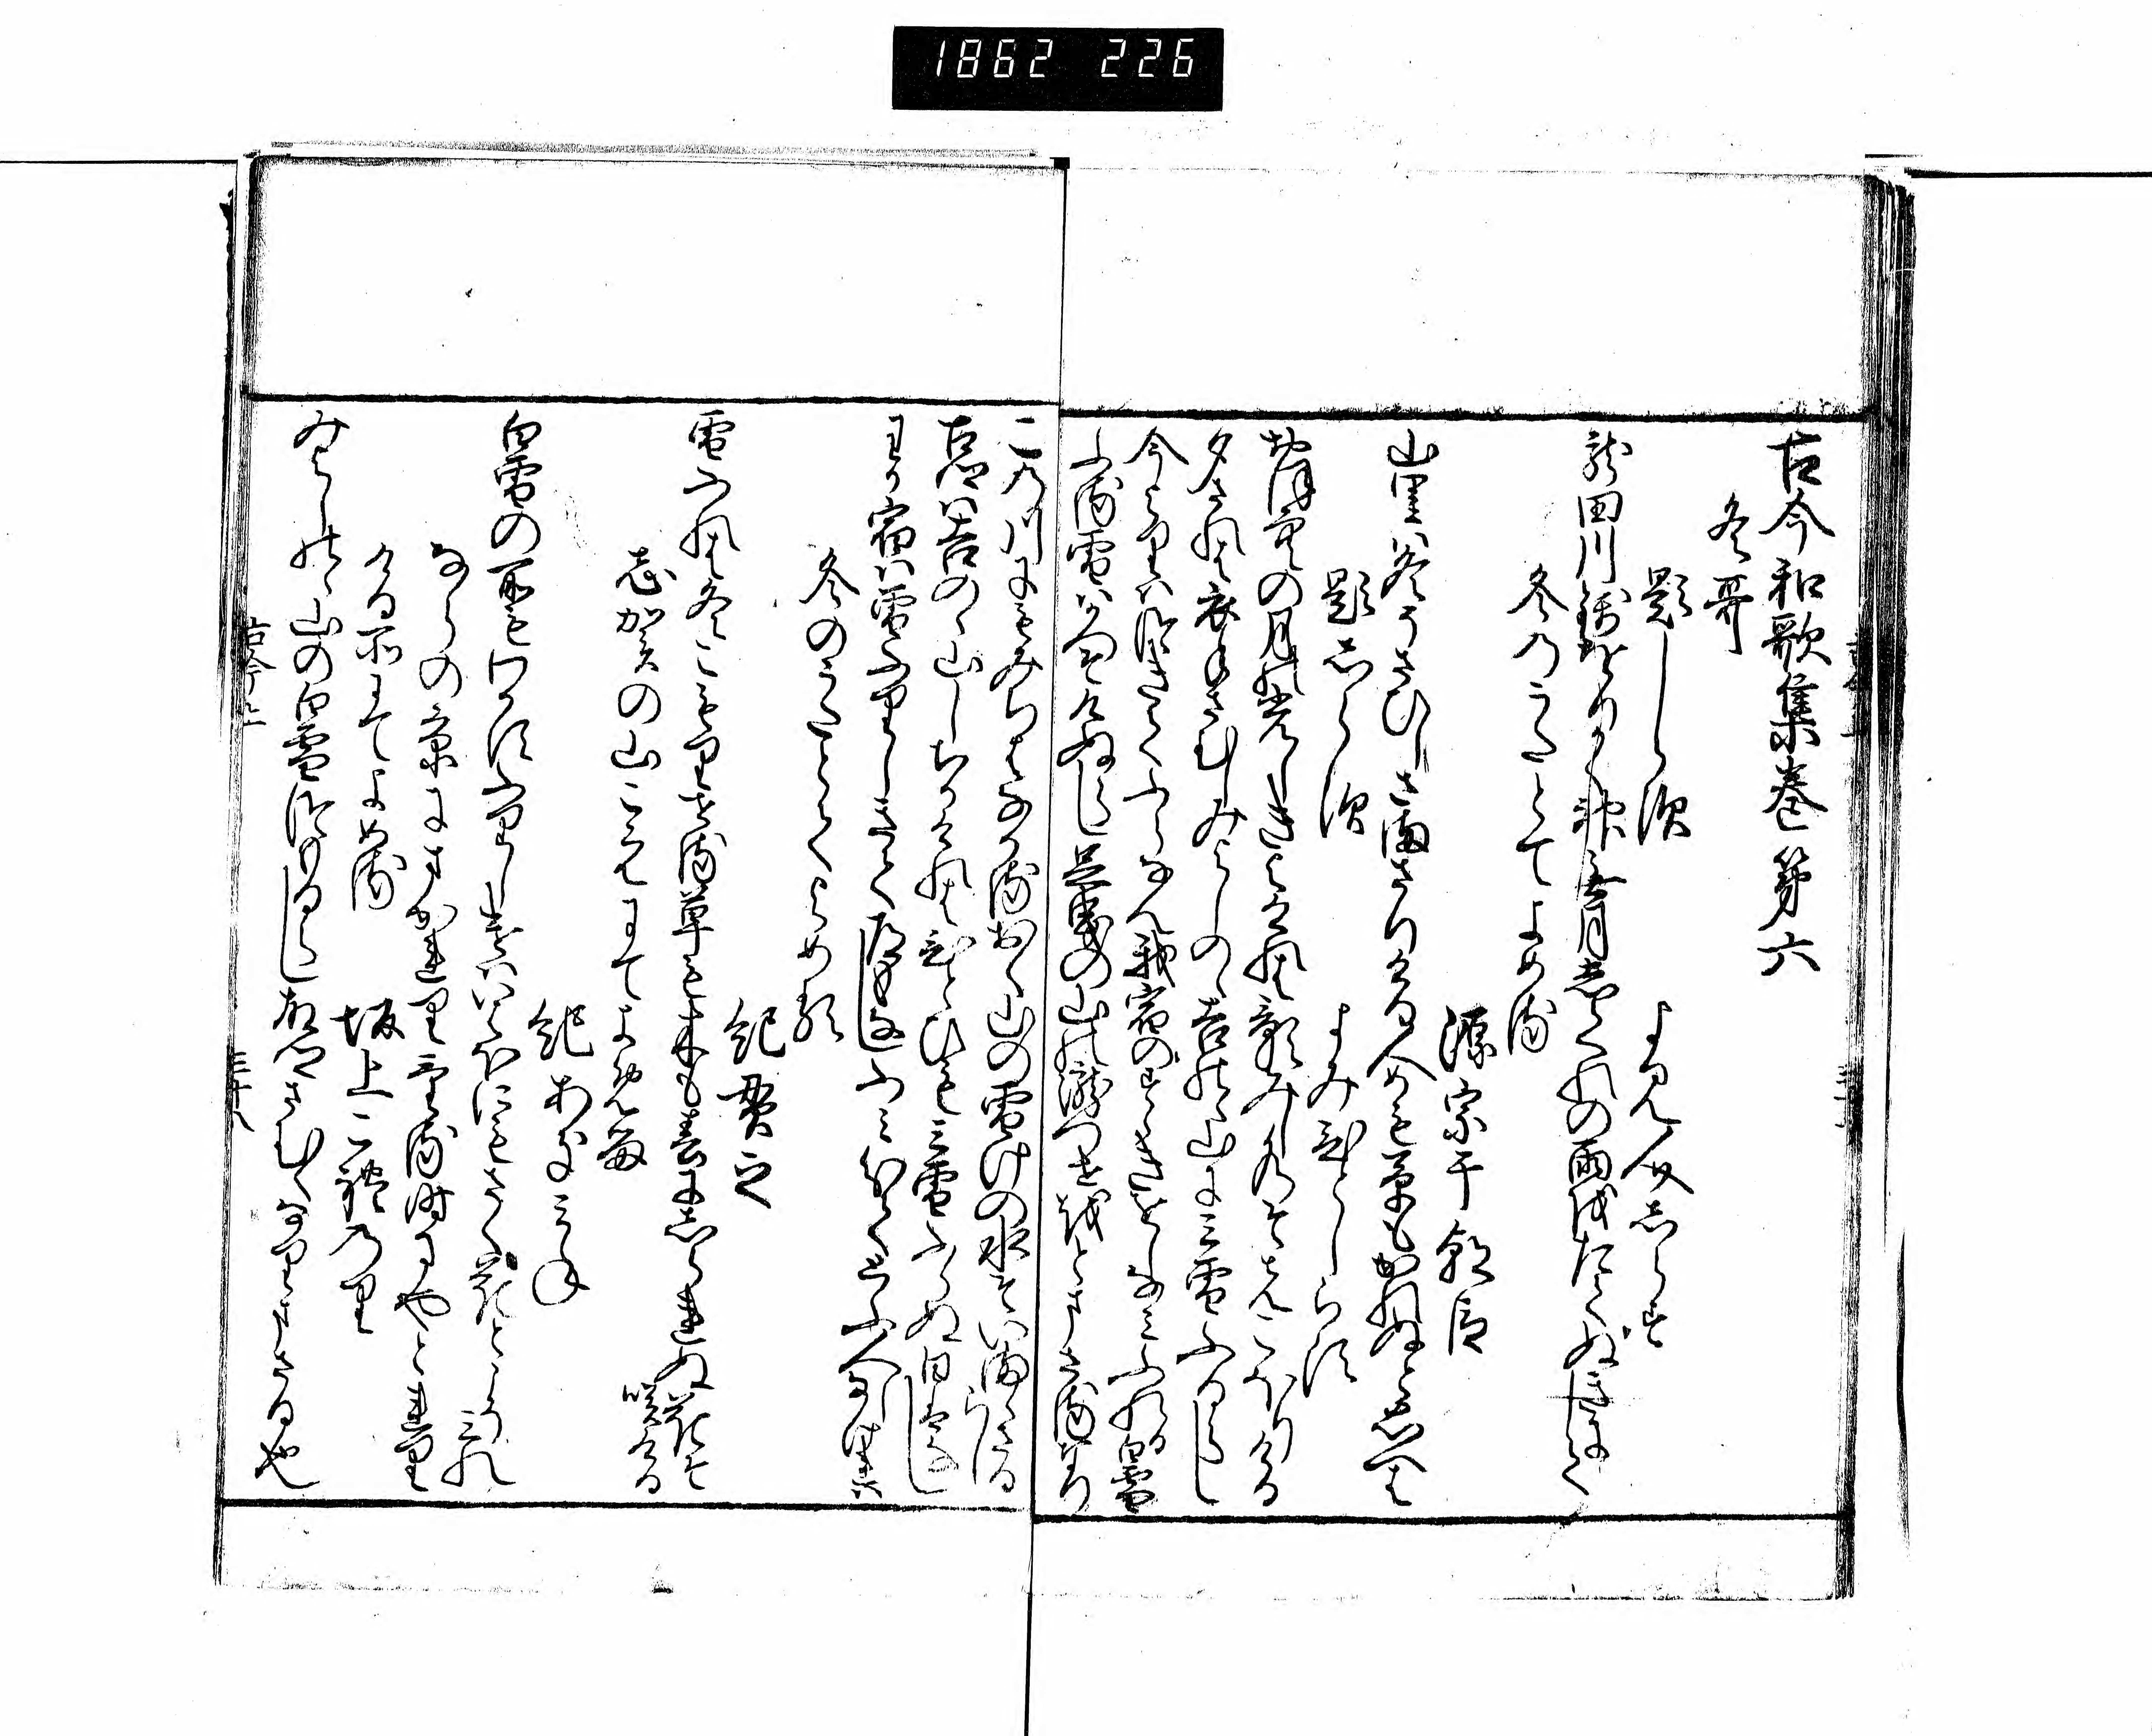 1862 226
古今和歌集巻第六
冬哥
題しらす
よみ人しらす
龍田川錦をりかく神無月しくれの雨をたてぬきにして
冬のうたとてよめる
源宗于朝臣
山里は冬そさひしさまさりける人めも草もかれぬと思へは
題しらす
よみ人しらす
大そらの月の光しきよけれは影みし水そまつこほりける
夕されは衣手さむしみよしのゝ吉野の山にみ雪ふるらし
今よりはつきてふらなん我宿のすゝきをしなみふれる白雪
ふる雪はかつそけぬらし足曳の山の瀧つせ音まさるなり
この川にもみちはなかるおく山の雪けの水そいままさるらし
古郷は吉のゝ山しちかけれは一日もみ雪ふらぬ日はなし
わか宿は雪ふりしきて道もなしふみわけてとふ人しなけれは
冬のうたとてよめる
紀貫之
雪ふれは冬こもりせる草も木も春にしられぬ花そ咲ける
志賀の山こえにてよめる
紀あきみね
白雪の所もわかすふりしけはいはほにもさく花とこそみれ
ならの京にまかれりける時にやとれりける所にてよめる
坂上これのり
みよしのゝ山の白雪つもるらし古郷さむくなりまさる也
古今上
三十八